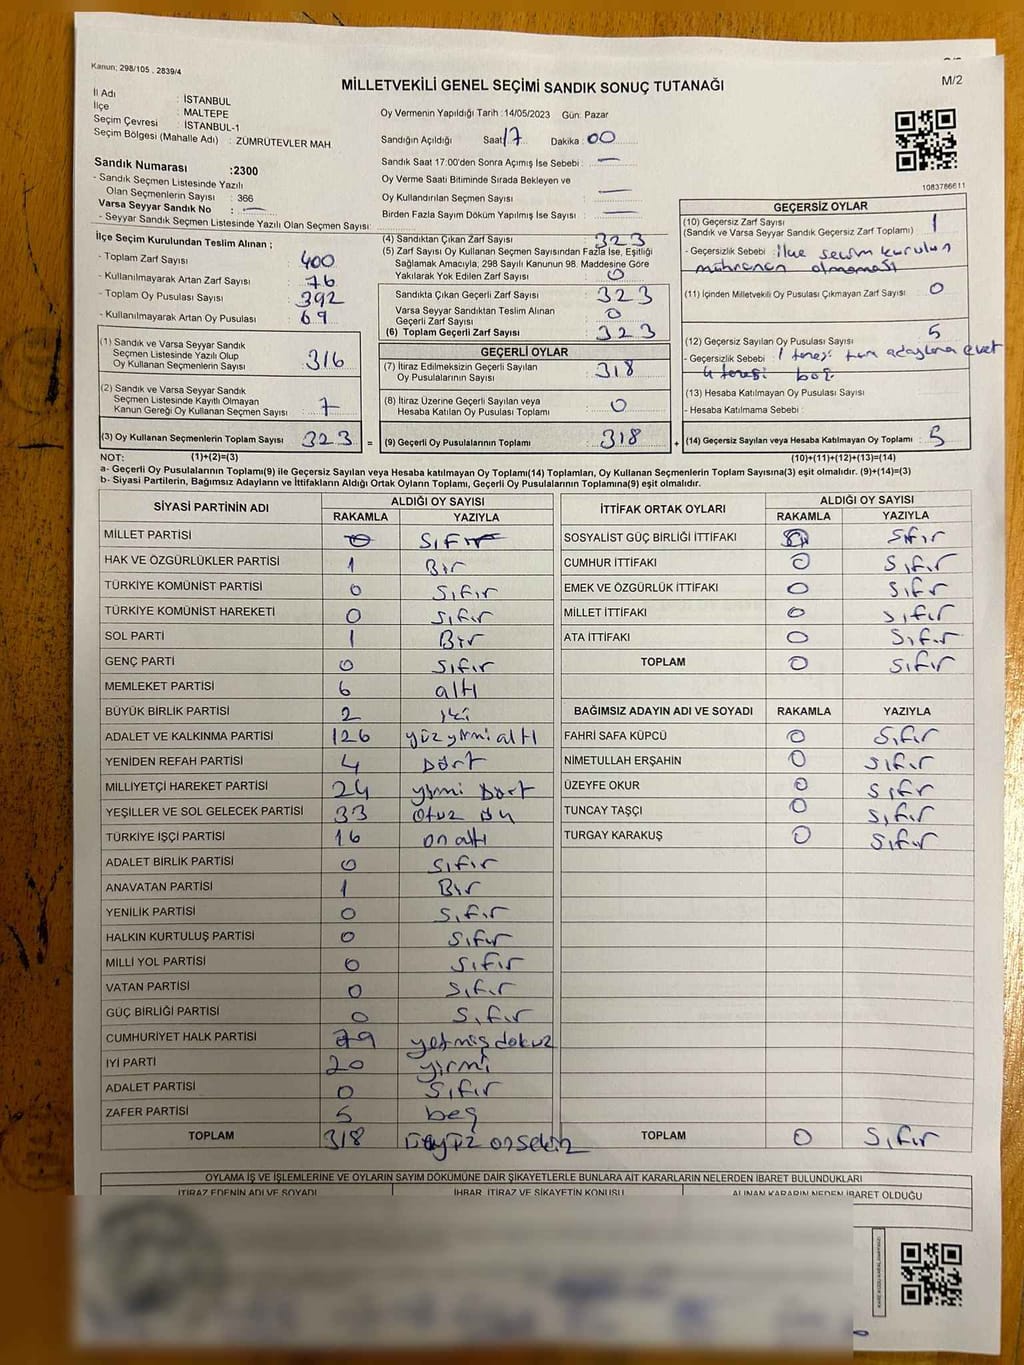 Kanun; 298/105 , 2839/4
M/2
MİLLETVEKİLİ GENEL SEÇİMİ SANDIK SONUÇ TUTANAĞI
İl Adı : İSTANBUL
İlçe : MALTEPE
Seçim Çevresi : İSTANBUL-1
Seçim Bölgesi (Mahalle Adı) : ZÜMRÜTEVLER MAH.
Oy Vermenin Yapıldığı Tarih : 14/05/2023 Gün: Pazar
Sandığın Açıldığı Saat 17 Dakika : 00
Sandık Saat 17:00'den Sonra Açımış İse Sebebi : —
Oy Verme Saati Bitiminde Sırada Bekleyen ve
Oy Kullandırılan Seçmen Sayısı : —
Birden Fazla Sayım Döküm Yapılmış İse Sayısı : —
1083786611
Sandık Numarası : 2300
- Sandık Seçmen Listesinde Yazılı
Olan Seçmenlerin Sayısı : 366
Varsa Seyyar Sandık No : —
- Seyyar Sandık Seçmen Listesinde Yazılı Olan Seçmen Sayısı:
İlçe Seçim Kurulundan Teslim Alınan ;
- Toplam Zarf Sayısı 400
- Kullanılmayarak Artan Zarf Sayısı : 76
- Toplam Oy Pusulası Sayısı : 392
- Kullanılmayarak Artan Oy Pusulası : 69
(1) Sandık ve Varsa Seyyar Sandık
Seçmen Listesinde Yazılı Olup
Oy Kullanan Seçmenlerin Sayısı : 316
(2) Sandık ve Varsa Seyyar Sandık
Seçmen Listesinde Kayıtlı Olmayan
Kanun Gereği Oy Kullanan Seçmen Sayısı : 7
(3) Oy Kullanan Seçmenlerin Toplam Sayısı 323 =
(4) Sandıktan Çıkan Zarf Sayısı : 323
(5) Zarf Sayısı Oy Kullanan Seçmen Sayısından Fazla İse, Eşitliği
Sağlamak Amacıyla, 298 Sayılı Kanunun 98. Maddesine Göre
Yakılarak Yok Edilen Zarf Sayısı : 0
Sandıkta Çıkan Geçerli Zarf Sayısı : 323
Varsa Seyyar Sandıktan Teslim Alınan
Geçerli Zarf Sayısı : 0
(6) Toplam Geçerli Zarf Sayısı : 323
GEÇERLİ OYLAR
(7) İtiraz Edilmeksizin Geçerli Sayılan
Oy Pusulalarının Sayısı : 318
(8) İtiraz Üzerine Geçerli Sayılan veya
Hesaba Katılan Oy Pusulası Toplamı : 0
(9) Geçerli Oy Pusulalarının Toplamı : 318 +
GEÇERSİZ OYLAR
(10) Geçersiz Zarf Sayısı : 1
(Sandık ve Varsa Seyyar Sandık Geçersiz Zarf Toplamı)
- Geçersizlik Sebebi : ilçe seçim kurulun
mührünün olmaması
(11) İçinden Milletvekili Oy Pusulası Çıkmayan Zarf Sayısı : 0
(12) Geçersiz Sayılan Oy Pusulası Sayısı : 5
- Geçersizlik Sebebi : 1 tanesi tüm adaylara evet
4 tanesi boş
(13) Hesaba Katılmayan Oy Pusulası Sayısı :
- Hesaba Katılmama Sebebi :
(14) Geçersiz Sayılan veya Hesaba Katılmayan Oy Toplamı : 5
NOT: (1)+(2)=(3) (10)+(11)+(12)+(13)=(14)
a- Geçerli Oy Pusulalarının Toplamı(9) ile Geçersiz Sayılan veya Hesaba katılmayan Oy Toplamı(14) Toplamları, Oy Kullanan Seçmenlerin Toplam Sayısına(3) eşit olmalıdır. (9)+(14)=(3)
b- Siyasi Partilerin, Bağımsız Adayların ve İttifakların Aldığı Ortak Oyların Toplamı, Geçerli Oy Pusulalarının Toplamına(9) eşit olmalıdır.
SİYASİ PARTİNİN ADI ALDIĞI OY SAYISI
RAKAMLA YAZIYLA
MİLLET PARTİSİ 0 Sıfır
HAK VE ÖZGÜRLÜKLER PARTİSİ 1 Bir
TÜRKİYE KOMÜNİST PARTİSİ 0 Sıfır
TÜRKİYE KOMÜNİST HAREKETİ 0 Sıfır
SOL PARTİ 1 Bir
GENÇ PARTİ 0 Sıfır
MEMLEKET PARTİSİ 6 altı
BÜYÜK BİRLİK PARTİSİ 2 iki
ADALET VE KALKINMA PARTİSİ 126 yüz yirmi altı
YENİDEN REFAH PARTİSİ 4 Dört
MİLLİYETÇİ HAREKET PARTİSİ 24 yirmi Dört
YEŞİLLER VE SOL GELECEK PARTİSİ 33 Otuz üç
TÜRKİYE İŞÇİ PARTİSİ 16 on altı
ADALET BİRLİK PARTİSİ 0 Sıfır
ANAVATAN PARTİSİ 1 Bir
YENİLİK PARTİSİ 0 Sıfır
HALKIN KURTULUŞ PARTİSİ 0 Sıfır
MİLLİ YOL PARTİSİ 0 Sıfır
VATAN PARTİSİ 0 Sıfır
GÜÇ BİRLİĞİ PARTİSİ 0 Sıfır
CUMHURİYET HALK PARTİSİ 79 yetmiş dokuz
İYİ PARTİ 20 yirmi
ADALET PARTİSİ 0 Sıfır
ZAFER PARTİSİ 5 beş
TOPLAM 318 üçyüz onsekiz
İTTİFAK ORTAK OYLARI ALDIĞI OY SAYISI
RAKAMLA YAZIYLA
SOSYALİST GÜÇ BİRLİĞİ İTTİFAKI 0 Sıfır
CUMHUR İTTİFAKI 0 Sıfır
EMEK VE ÖZGÜRLÜK İTTİFAKI 0 Sıfır
MİLLET İTTİFAKI 0 Sıfır
ATA İTTİFAKI 0 Sıfır
TOPLAM 0 Sıfır
BAĞIMSIZ ADAYIN ADI VE SOYADI RAKAMLA YAZIYLA
FAHRİ SAFA KÜPCÜ 0 Sıfır
NİMETULLAH ERŞAHİN 0 Sıfır
ÜZEYFE OKUR 0 Sıfır
TUNCAY TAŞÇI 0 Sıfır
TURGAY KARAKUŞ 0 Sıfır
TOPLAM 0 Sıfır
OYLAMA İŞ VE İŞLEMLERİNE VE OYLARIN SAYIM DÖKÜMÜNE DAİR ŞİKAYETLERLE BUNLARA AİT KARARLARIN NELERDEN İBARET BULUNDUKLARI
İTİRAZ EDENİN ADI VE SOYADI İHBAR, İTİRAZ VE ŞİKAYETİN KONUSU ALINAN KARARIN NEDEN İBARET OLDUĞU